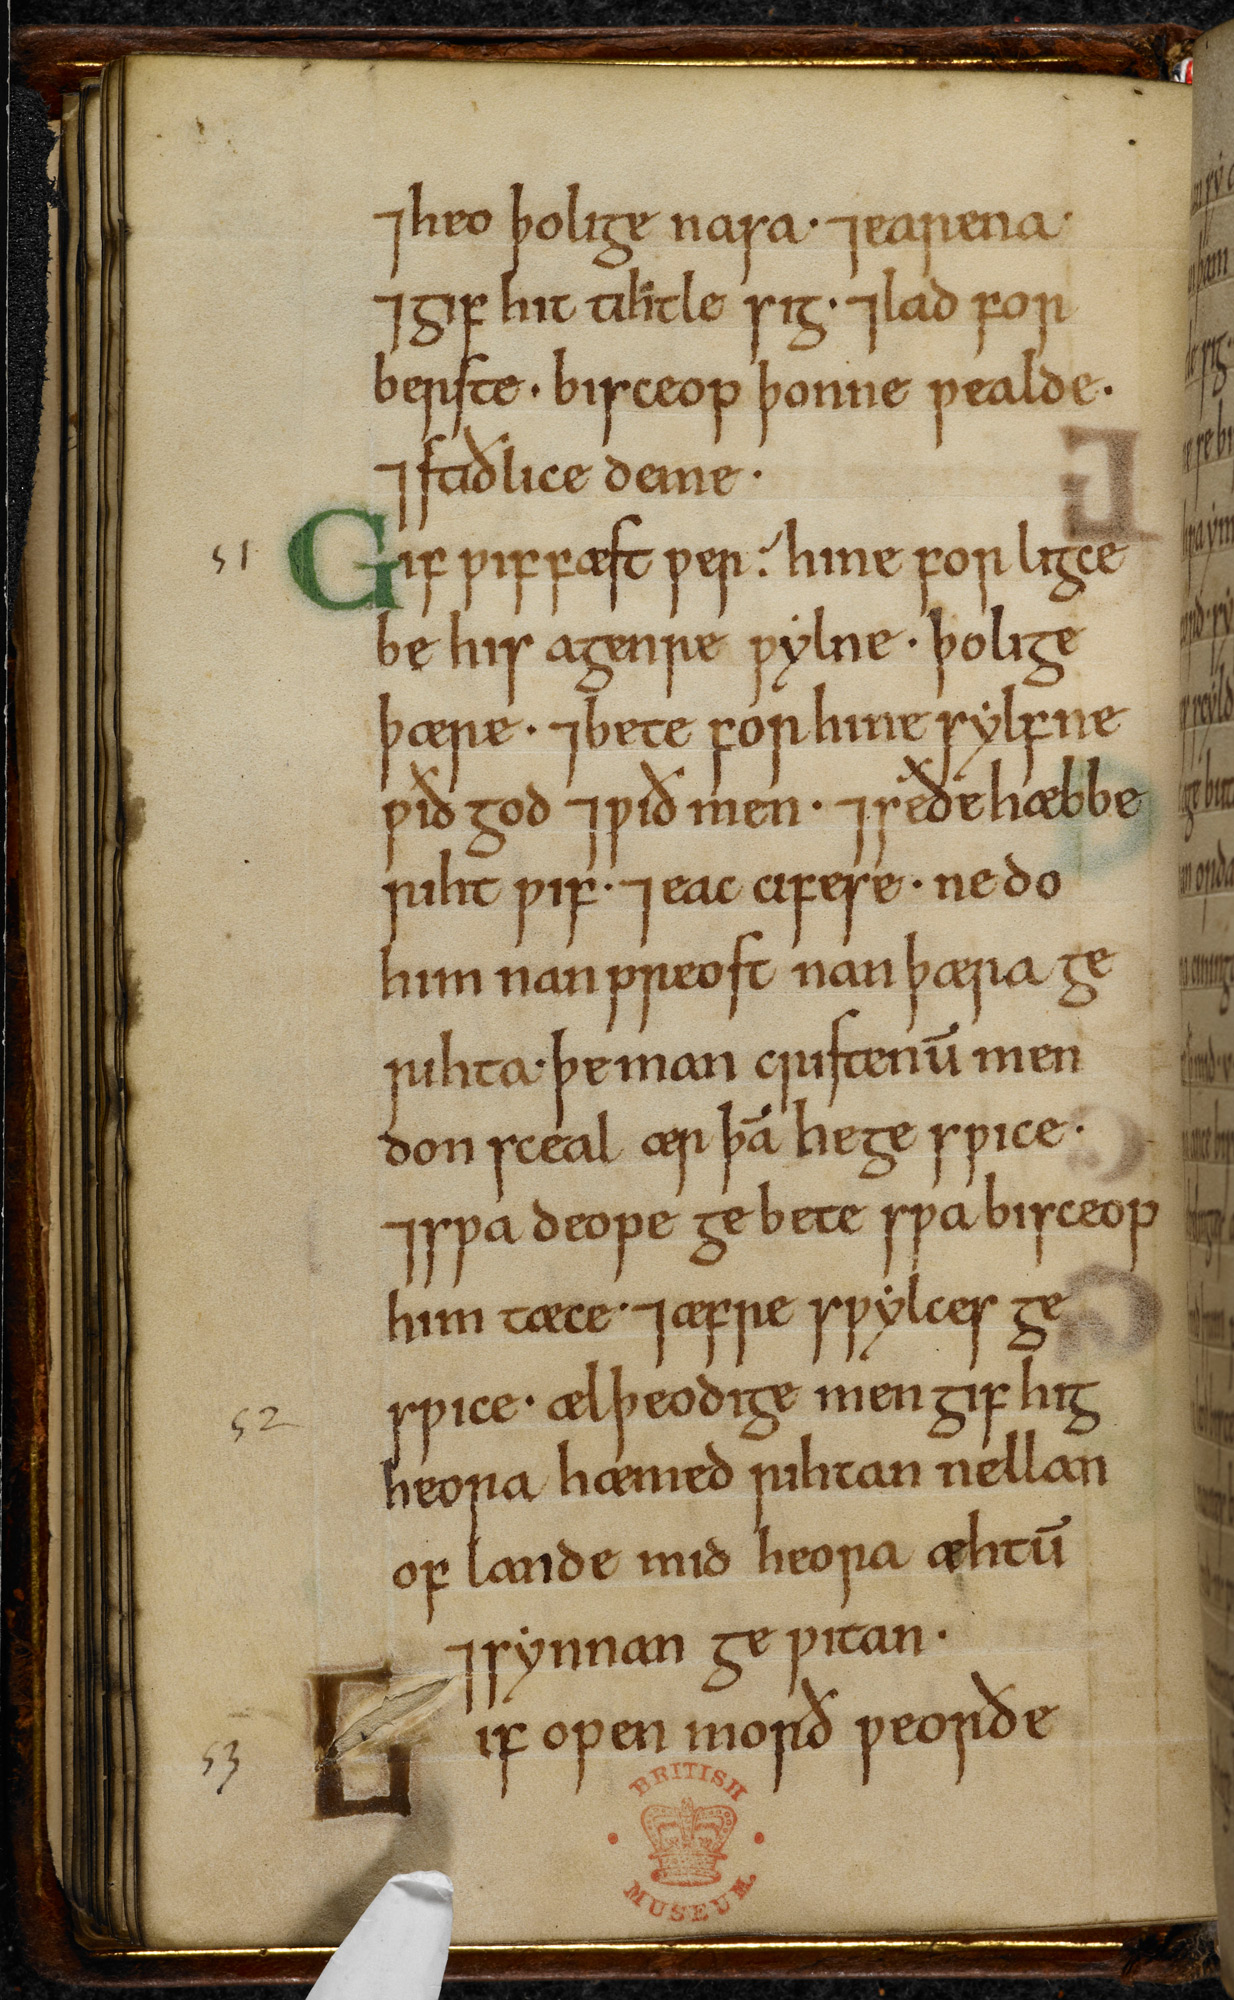 ⁊ heo þolige nasa· ⁊ earena·
⁊ gif hit tihtle sig· ⁊ lad for
berste· bisceop þonne ƿealde·
⁊ stiðlice deme·
51 Gif ƿiffæst ƿer· hine forligce
be his agenre ƿẏlne· þolige
þære· ⁊ bete for hine sẏlfne
ƿið god ⁊ ƿið men· ⁊ se ðe hæbbe
riht ƿif· ⁊ eac cifese· ne do
him nan preost nan þæra ge
rihta· þe man cristenū men
don sceal ær þā he gesƿice·
⁊ sƿa deope gebete sƿa bisceop
him tæce· ⁊ æfre sƿẏlces ge
52 sƿice· ælþeodige men gif hig
heora hæmed rihtan nellan
of lande mid heora æhtū
⁊ sẏnnan geƿitan·
53 Gif open morð ƿeorðe
BRITISH
MUSEUM